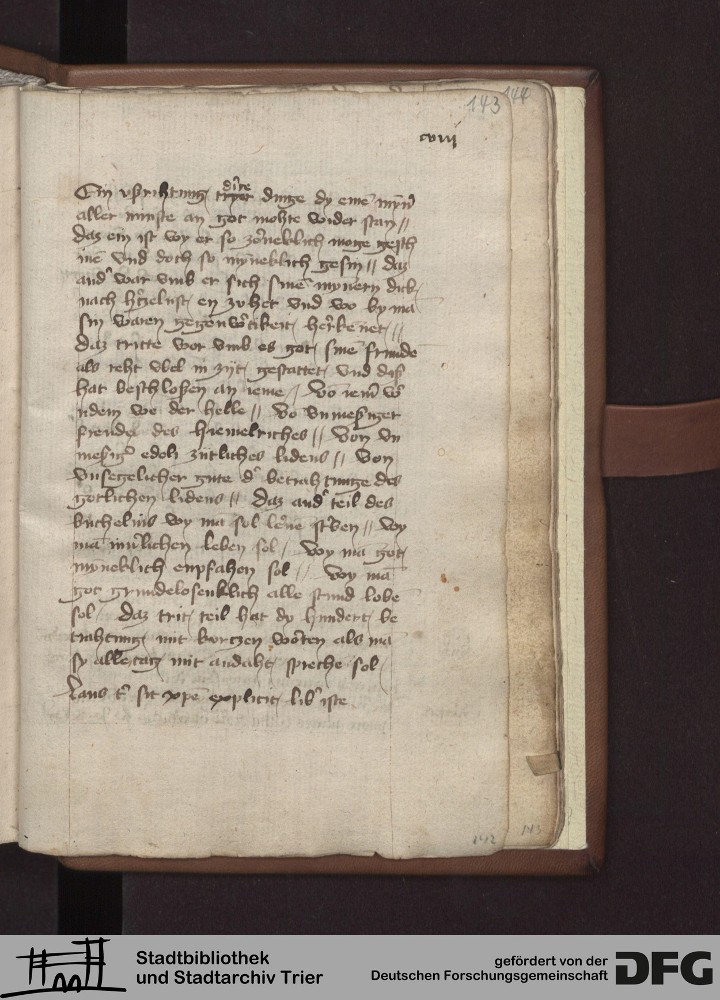 143 144
cviij
Ein vßrichtung dire dinge dy eine myn
aller minste an got mohte wider stan //
Daz ein ist wy er so zorneklich moge gesch
ine vnd doch so myneklich gesin // daz
and war vmb er sich sine mynern dick
nach h'tzelust en zuhet vnd wo by ma
sin waren gegenwertikeit herkenet //
daz tritte wor vmb es got sine frunde
als reht vbel in zijt gestattet vnd diß
hat beschloßen an ieme / Vo iem' w'
ndem we der helle // Vo vnmeßiger
freude des hiemelriches // Von vn
meßig' edoly zitliches lidens // Von
vnsegelicher gute d' betrahtunge des
gotlichen lidens // Daz and' teil des
buchelins wy ma sol lerne st'ben // wy
ma inn'lichen leben sol / wy ma got
myneklich enpfahen sol // wy ma
got grundelosenklich alle stund lobe
sol / Daz trit teil hat dy hundert be
trahtung mit kortzen worten als ma
sy alle tag mit andaht spreche sol
Laus t' sit xpe explicit lib' iste
142 143
Stadtbibliothek
und Stadtarchiv Trier
gefördert von der
Deutschen Forschungsgemeinschaft
DFG